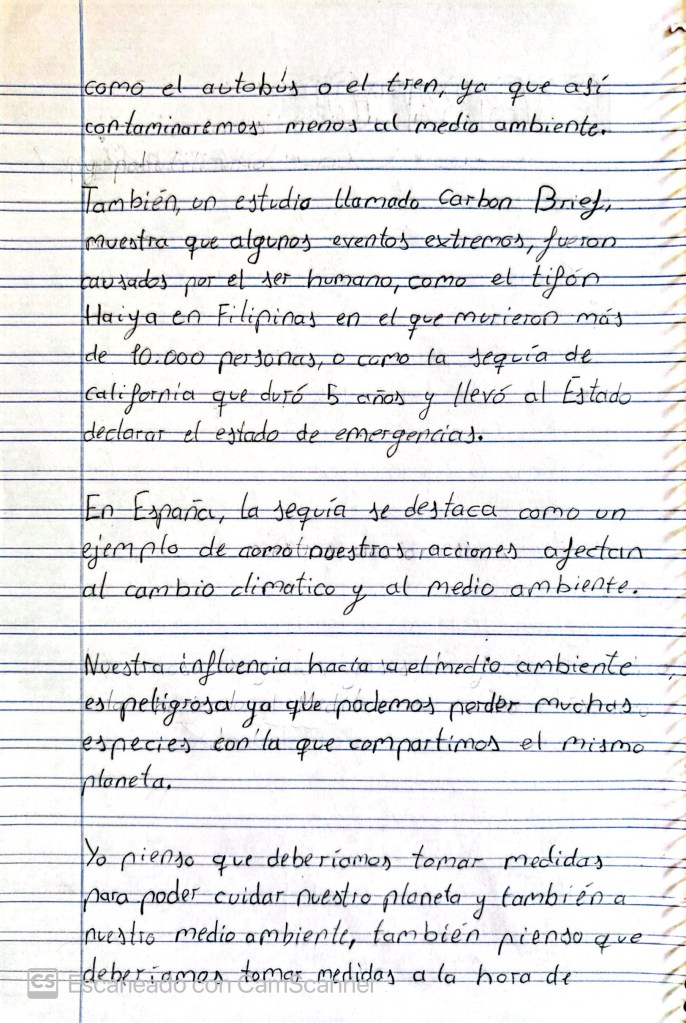 como el autobús o el tren, ya que así
contaminaremos menos al medio ambiente.
También, un estudio llamado Carbon Brief,
muestra que algunos eventos extremos, fueron
causados por el ser humano, como el tifón
Haiya en Filipinas en el que murieron más
de 10.000 personas, o como la sequía de
california que duró 5 años y llevó al Estado
declarar el estado de emergencias.
En España, la sequía se destaca como un
ejemplo de como nuestras acciones afectan
al cambio climatico y al medio ambiente.
Nuestra influencia hacia a el medio ambiente
es peligrosa ya que podemos perder muchas
especies con la que compartimos el mismo
planeta.
Yo pienso que deberíamos tomar medidas
para poder cuidar nuestro planeta y también a
nuestro medio ambiente, también pienso que
deberíamos tomar medidas a la hora de
CS Escaneado con CamScanner